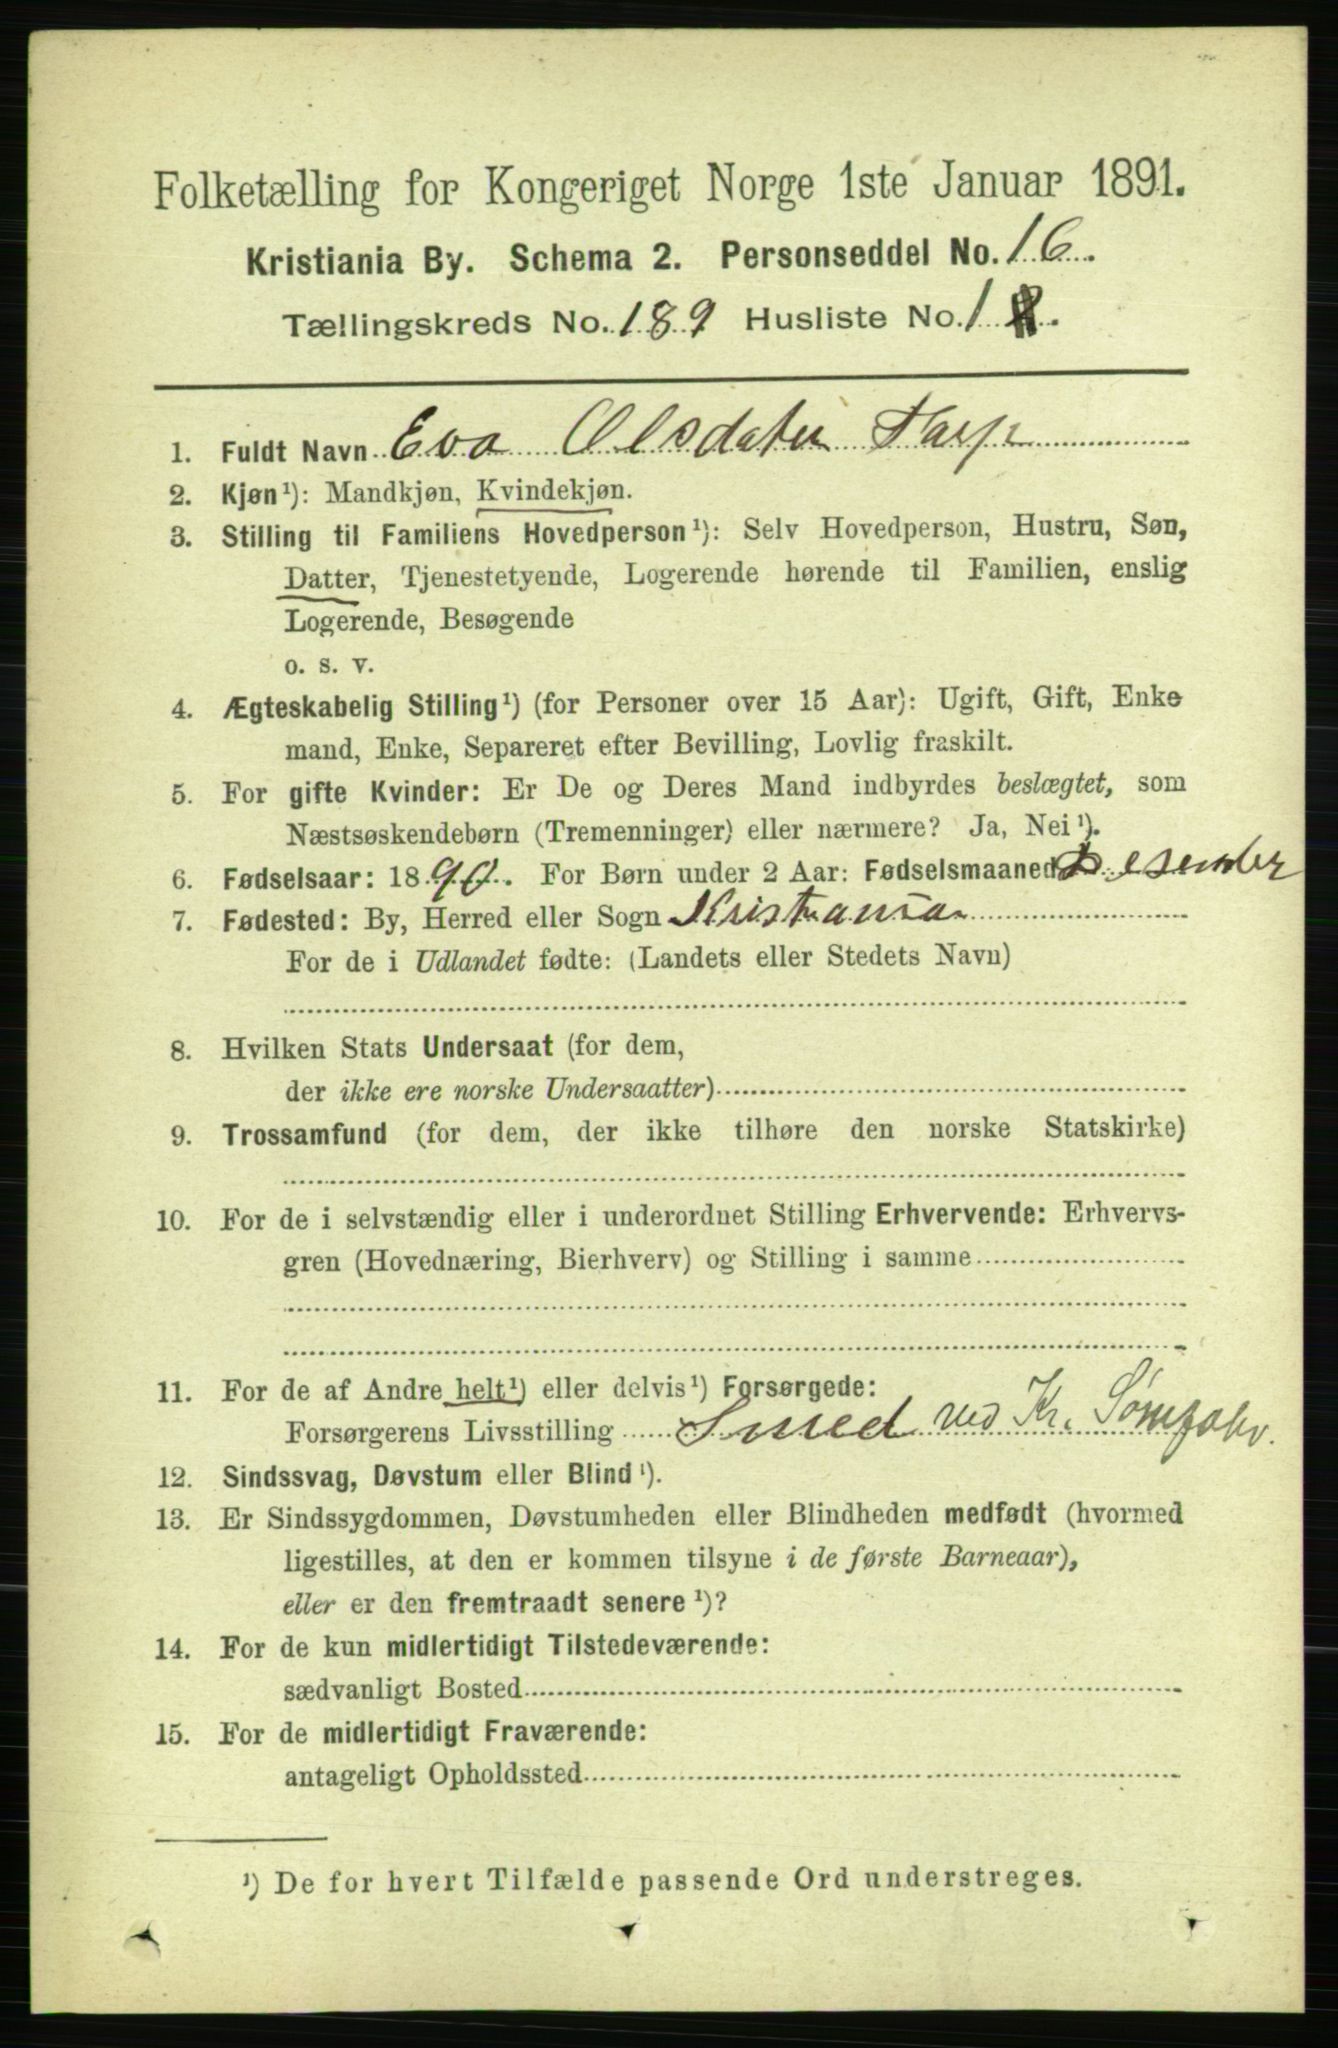 Folketælling for Kongeriget Norge 1ste Januar 1891.
Kristiania By. Schema 2. Personseddel No. 16.
Tællingskreds No. 189 Husliste No. 1
1. Fuldt Navn Eva Olsdater
2. Kjøn¹): Mandkjøn, Kvindekjøn.
3. Stilling til Familiens Hovedperson¹): Selv Hovedperson, Hustru, Søn,
Datter, Tjenestetyende, Logerende hørende til Familien, enslig
Logerende, Besøgende
o. s. v.
4. Ægteskabelig Stilling¹) (for Personer over 15 Aar): Ugift, Gift, Enke
mand, Enke, Separeret efter Bevilling, Lovlig fraskilt.
5. For gifte Kvinder: Er De og Deres Mand indbyrdes beslægtet, som
Næstsøskendebørn (Tremenninger) eller nærmere? Ja, Nei¹).
6. Fødselsaar: 1890. For Børn under 2 Aar: Fødselsmaaned Desember
7. Fødested: By, Herred eller Sogn Kristiania
For de i Udlandet fødte: (Landets eller Stedets Navn)
8. Hvilken Stats Undersaat (for dem,
der ikke ere norske Undersaatter)
9. Trossamfund (for dem, der ikke tilhøre den norske Statskirke)
10. For de i selvstændig eller i underordnet Stilling Erhvervende: Erhvervs-
gren (Hovednæring, Bierhverv) og Stilling i samme
11. For de af Andre helt¹) eller delvis¹) Forsørgede:
Forsørgerens Livsstilling Smed ved Kr. Sømfabr.
12. Sindssvag, Døvstum eller Blind¹).
13. Er Sindssygdommen, Døvstumheden eller Blindheden medfødt (hvormed
ligestilles, at den er kommen tilsyne i de første Barneaar),
eller er den fremtraadt senere¹)?
14. For de kun midlertidigt Tilstedeværende:
sædvanligt Bosted
15. For de midlertidigt Fraværende:
antageligt Opholdssted
¹) De for hvert Tilfælde passende Ord understreges.